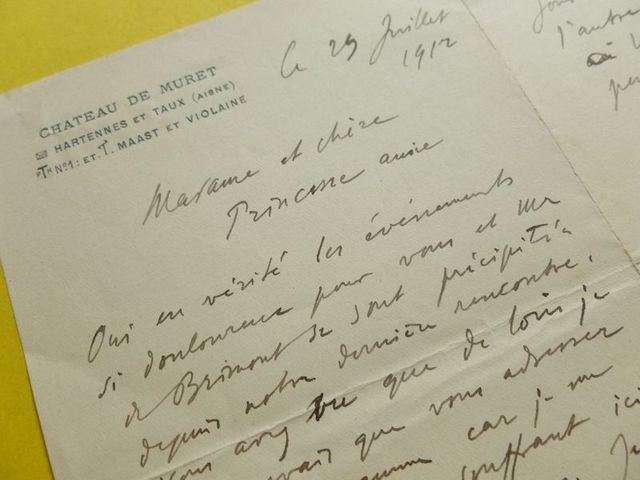 CHATEAU DE MURET
HARTENNES ET TAUX (AISNE)
Tᴴ Nº1: ET. T. MAAST ET VIOLAINE
Le 29 Juillet
1912
Madame et chère
Princesse amie
Oui en vérité les événements
si douloureux pour vous et Mr
de Brimont se sont précipités
depuis notre dernière rencontre.
Vous avez vu que de loin je
que vous adresser
car je me
souffrant ici
l'autre